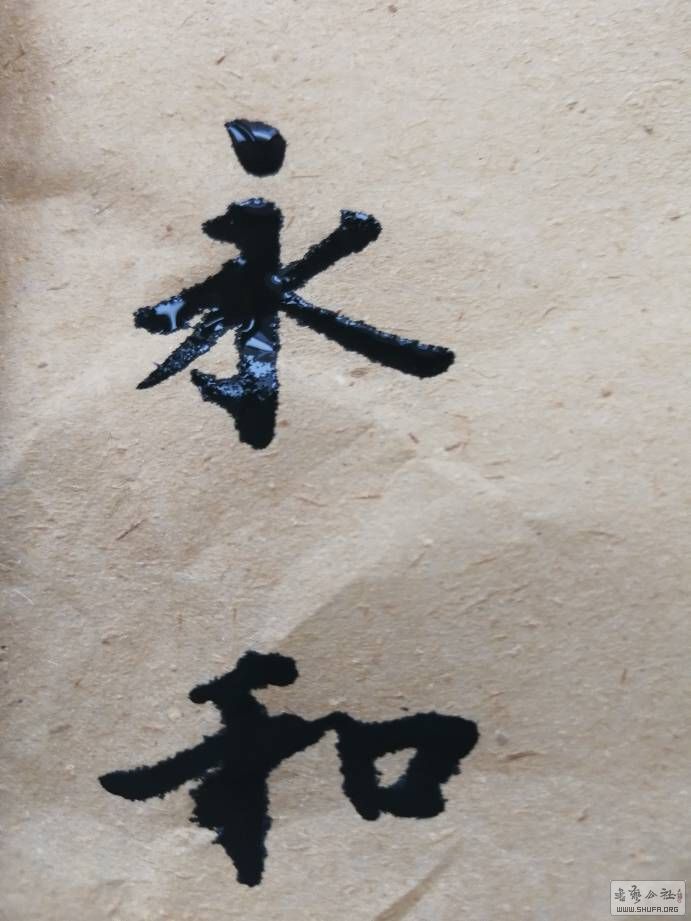 永和
书艺公社
WWW.SHUFA.ORG